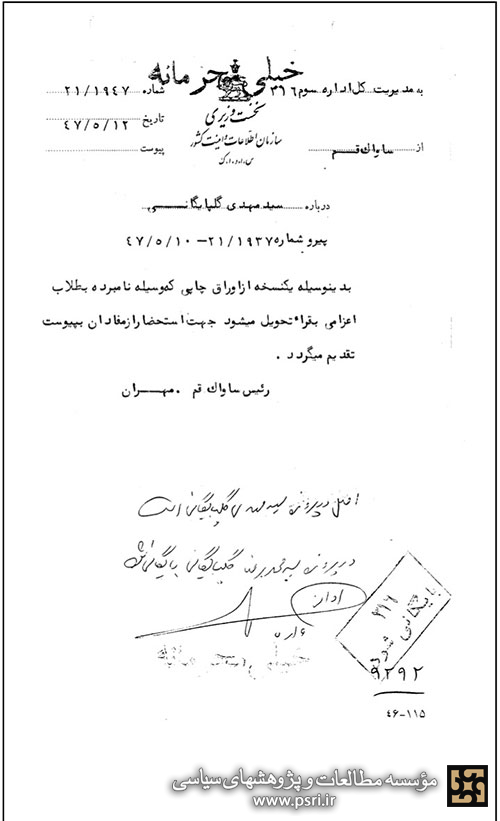 خیلی محرمانه
به مدیریت کل اداره سوم ۳۱۶
شماره ۲۱/۱۹۴۷
نخست وزیری
تاریخ ۴۷/۵/۱۲
سازمان اطلاعات و امنیت کشور
از ساواک قم
پیوست
درباره سید مهدی گلپایگانی
پیرو شماره ۲۱/۱۹۳۷ – ۴۷/۵/۱۰
بدینوسیله یکنسخه از اوراق چاپی که وسیله نامبرده بطلاب
اعزامی بقراء تحویل میشود جهت استحضار از مفاد آن بپیوست
تقدیم میگردد .
رئیس ساواک قم . مهران
اصل در پرونده سید مهدی گلپایگانی است
در پرونده سید محمدرضا گلپایگانی بایگانی شود
خیلی محرمانه
۳۱۶
بایگانی شود
۹۲۹۲
۴۶-۱۱۵
مؤسسه مطالعات و پژوهشهای سیاسی
www.psri.ir